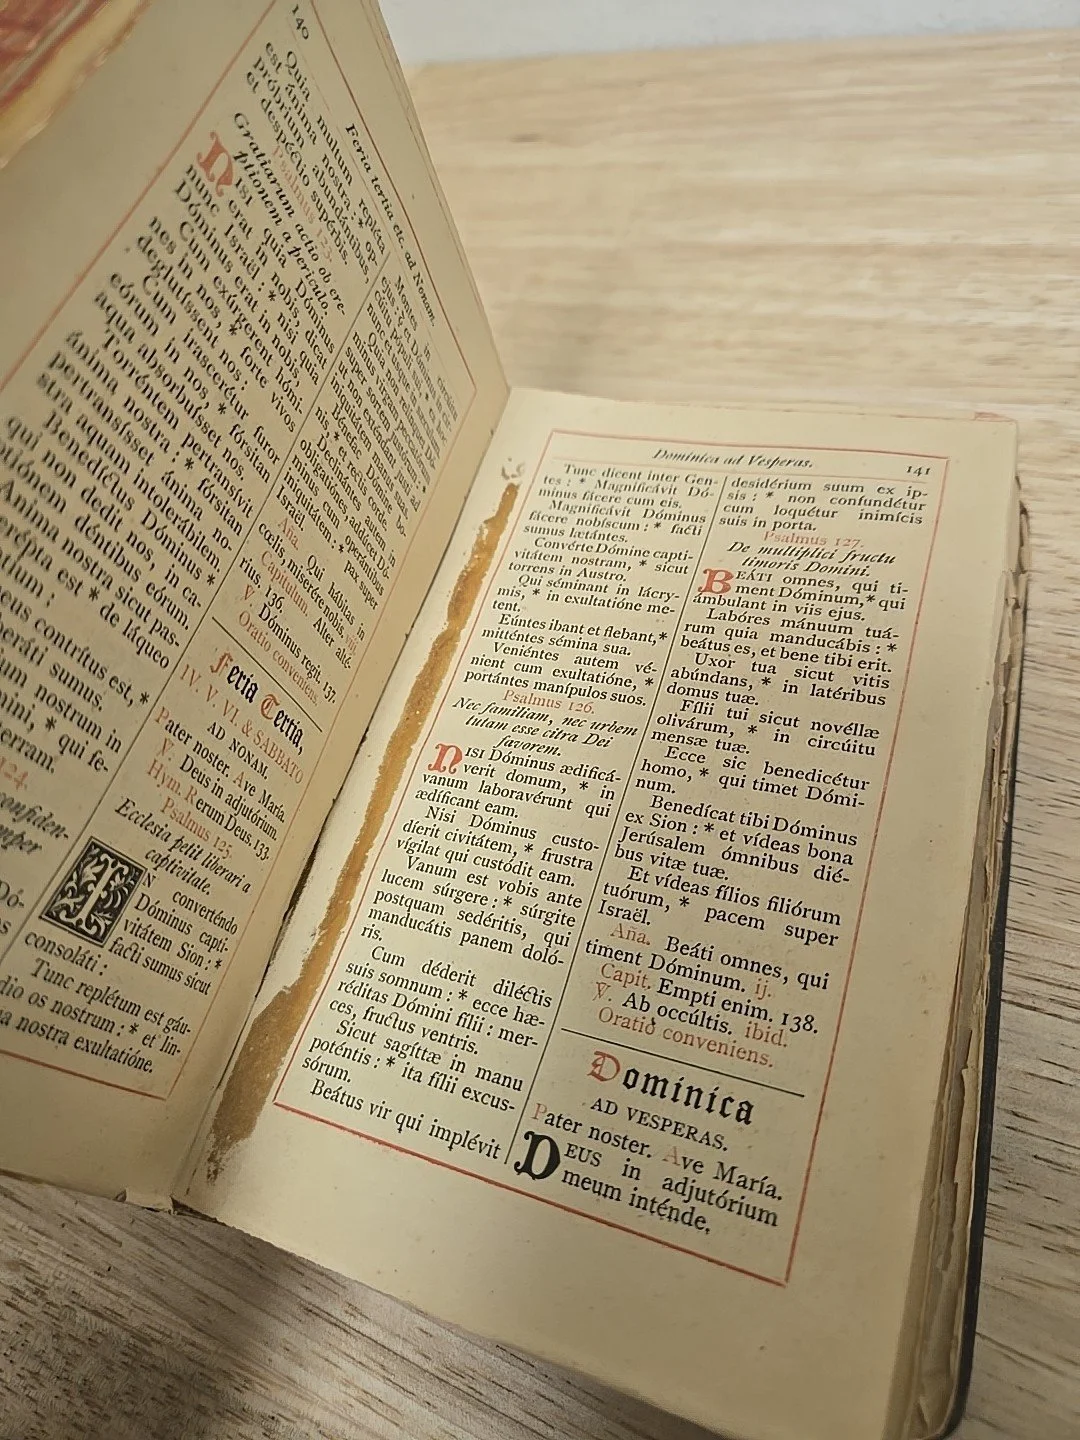 140
Feria tertia etc. ad Nonam.
Quia multum repléta
est ánima nostra : * op-
próbrium abundántibus,
et despéctio supérbis.
Psalmus 123.
Gratiarum actio ob ere-
ptionem a periculo.
NISI quia Dóminus
erat in nobis, dicat
nunc Israël : * nisi quia
Dóminus erat in nobis,
Cum exúrgerent hómi-
nes in nos, * forte vivos
deglutíssent nos :
Cum irascerétur furor
eórum in nos, * fórsitan
aqua absorbuísset nos.
Torréntem pertransívit
ánima nostra : * fórsitan
pertransísset ánima no-
stra aquam intolerábilem.
Benedíctus Dóminus *
qui non dedit nos, in ca-
ptiónem déntibus eórum.
Anima nostra sicut pas-
erépta est * de láqueo
ntium :
queus contrítus est, *
iberáti sumus.
ium nostrum in
mini, * qui fe-
terram.
124.
confiden-
mper
Dó-
Montes in
Quia non relínquet Dó-
minus virgam peccatórum
super sortem justórum : *
ut non exténdant justi ad
iniquitátem manus suas.
Bénefac Dómine bo-
nis, * et rectis corde.
Declinántes autem in
obligatiónes, addúcet Dó-
minus cum operántibus
iniquitátem : * pax super
Israël.
Aña. Qui hábitas in
cœlis, miserére nobis. ij.
Capitulum. Alter alté-
rius, 136.
℣. Dóminus regit. 137
Oratio conveniens.
Feria Tertia,
IV. V. VI. & SABBATO
AD NONAM.
Pater noster. Ave María.
℣. Deus in adjutórium.
Hym. Rerum Deus, 133.
Psalmus 125.
Ecclesia petit liberari a
captivitate.
IN converténdo
Dóminus capti-
vitátem Sion : *
facti sumus sicut
consoláti :
Tunc replétum est gáu-
dio os nostrum : * et lin-
gua nostra exultatióne.
Dominica ad Vesperas.
141
Tunc dicent inter Gen-
tes : * Magnificávit Dó-
minus fácere cum eis.
Magnificávit Dóminus
fácere nobíscum : * facti
sumus lætántes.
Convérte Dómine capti-
vitátem nostram, * sicut
torrens in Austro.
Qui séminant in lácry-
mis, * in exultatióne me-
tent.
Eúntes ibant et flebant, *
mitténtes sémina sua.
Veniéntes autem vé-
nient cum exultatióne, *
portántes manípulos suos.
Psalmus 126.
Nec familiam, nec urbem
tutam esse citra Dei
favorem.
NISI Dóminus ædificá-
verit domum, * in
vanum laboravérunt qui
ædíficant eam.
Nisi Dóminus custo-
díerit civitátem, * frustra
vígilat qui custódit eam.
Vanum est vobis ante
lucem súrgere : * súrgite
postquam sedéritis, qui
manducátis panem doló-
ris.
Cum déderit diléctis
suis somnum : * ecce hæ-
réditas Dómini fílii : mer-
ces, fructus ventris.
Sicut sagíttæ in manu
poténtis : * ita fílii excus-
sórum.
Beátus vir qui implévit
desidérium suum ex ip-
sis : * non confundétur
cum loquétur inimícis
suis in porta.
Psalmus 127.
De multiplici fructu
timoris Domini.
BEÁTI omnes, qui ti-
ment Dóminum, * qui
ámbulant in viis ejus.
Labóres mánuum tuá-
rum quia manducábis : *
beátus es, et bene tibi erit.
Uxor tua sicut vitis
abúndans, * in latéribus
domus tuæ.
Fílii tui sicut novéllæ
olivárum, * in circúitu
mensæ tuæ.
Ecce sic benedicétur
homo, * qui timet Dómi-
num.
Benedícat tibi Dóminus
ex Sion : * et vídeas bona
Jerúsalem ómnibus dié-
bus vitæ tuæ.
Et vídeas fílios filiórum
tuórum, * pacem super
Israël.
Aña. Beáti omnes, qui
timent Dóminum. ij.
Capit. Empti enim. 138.
℣. Ab occúltis. ibid.
Oratio conveniens.
Dominica
AD VESPERAS.
Pater noster. Ave María.
DEUS in adjutórium
meum inténde,